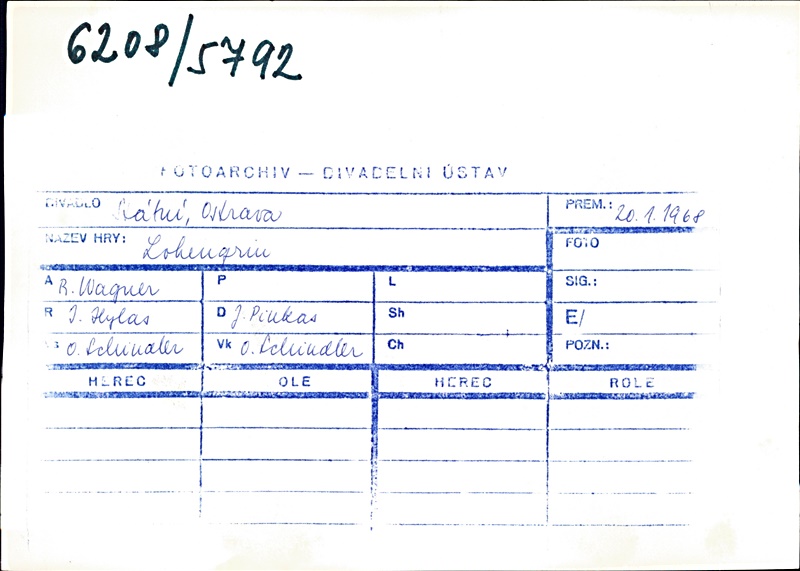 6208/5792
FOTOARCHIV — DIVADELNÍ ÚSTAV
DIVADLO Státní, Ostrava PREM.: 20.1.1968
NÁZEV HRY: Lohengrin FOTO
A R. Wagner P L SIG.:
R I. Hylas D J. Pinkas Sh E/
O. Schindler Vk O. Schindler Ch POZN.:
HEREC OLE HEREC ROLE